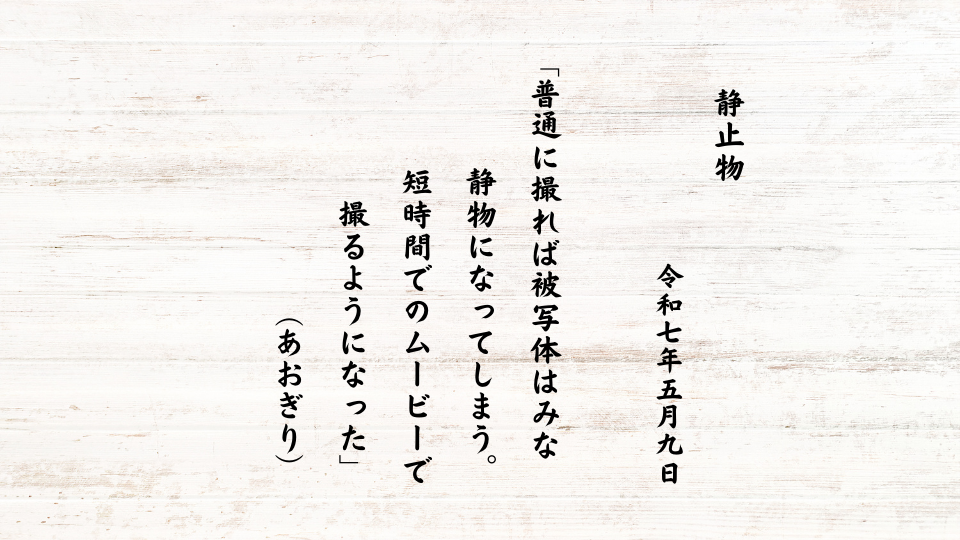 静止物
令和七年五月九日
「普通に撮れば被写体はみな
静物になってしまう。
短時間でのムービーで
撮るようになった」
（あおぎり）